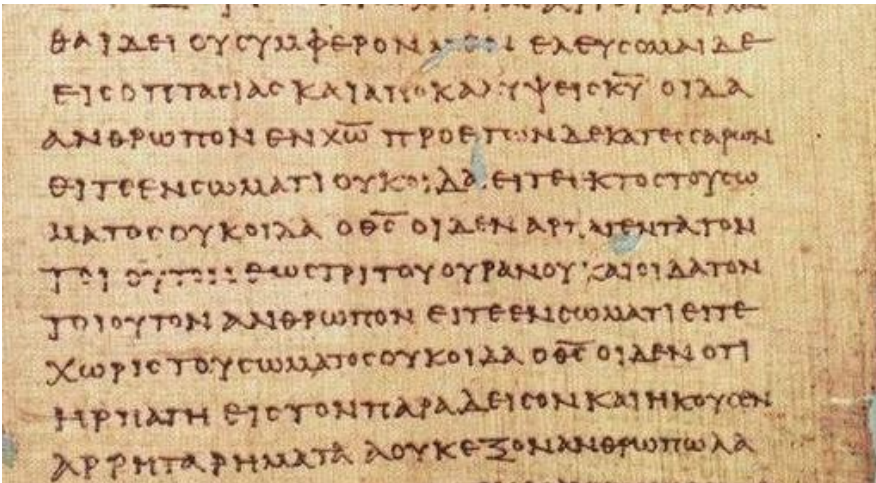 ΘΑΙ ΔΕΙ ΟΥ ϹΥΜΦΕΡΟΝ ΜΕΝ ΕΛΕΥϹΟΜΑΙ ΔΕ
ΕΙϹ ΟΠΤΑϹΙΑϹ ΚΑΙ ΑΠΟΚΑΛΥΨΕΙϹ Κ̅Υ̅ ΟΙΔΑ
ΑΝΘΡΩΠΟΝ ΕΝ Χ̅Ω̅ ΠΡΟ ΕΤΩΝ ΔΕΚΑΤΕϹϹΑΡΩΝ
ΕΙΤΕ ΕΝ ϹΩΜΑΤΙ ΟΥΚ ΟΙΔΑ ΕΙΤΕ ΕΚΤΟϹ ΤΟΥ ϹΩ
ΜΑΤΟϹ ΟΥΚ ΟΙΔΑ Ο Θ̅Ϲ̅ ΟΙΔΕΝ ΑΡΠΑΓΕΝΤΑ ΤΟΝ
ΤΟΙΟΥΤΟΝ ΕΩϹ ΤΡΙΤΟΥ ΟΥΡΑΝΟΥ ΚΑΙ ΟΙΔΑ ΤΟΝ
ΤΟΙΟΥΤΟΝ ΑΝΘΡΩΠΟΝ ΕΙΤΕ ΕΝ ϹΩΜΑΤΙ ΕΙΤΕ
ΧΩΡΙϹ ΤΟΥ ϹΩΜΑΤΟϹ ΟΥΚ ΟΙΔΑ Ο Θ̅Ϲ̅ ΟΙΔΕΝ ΟΤΙ
ΗΡΠΑΓΗ ΕΙϹ ΤΟΝ ΠΑΡΑΔΕΙϹΟΝ ΚΑΙ ΗΚΟΥϹΕΝ
ΑΡΡΗΤΑ ΡΗΜΑΤΑ Α ΟΥΚ ΕΞΟΝ ΑΝΘΡΩΠΩ ΛΑ